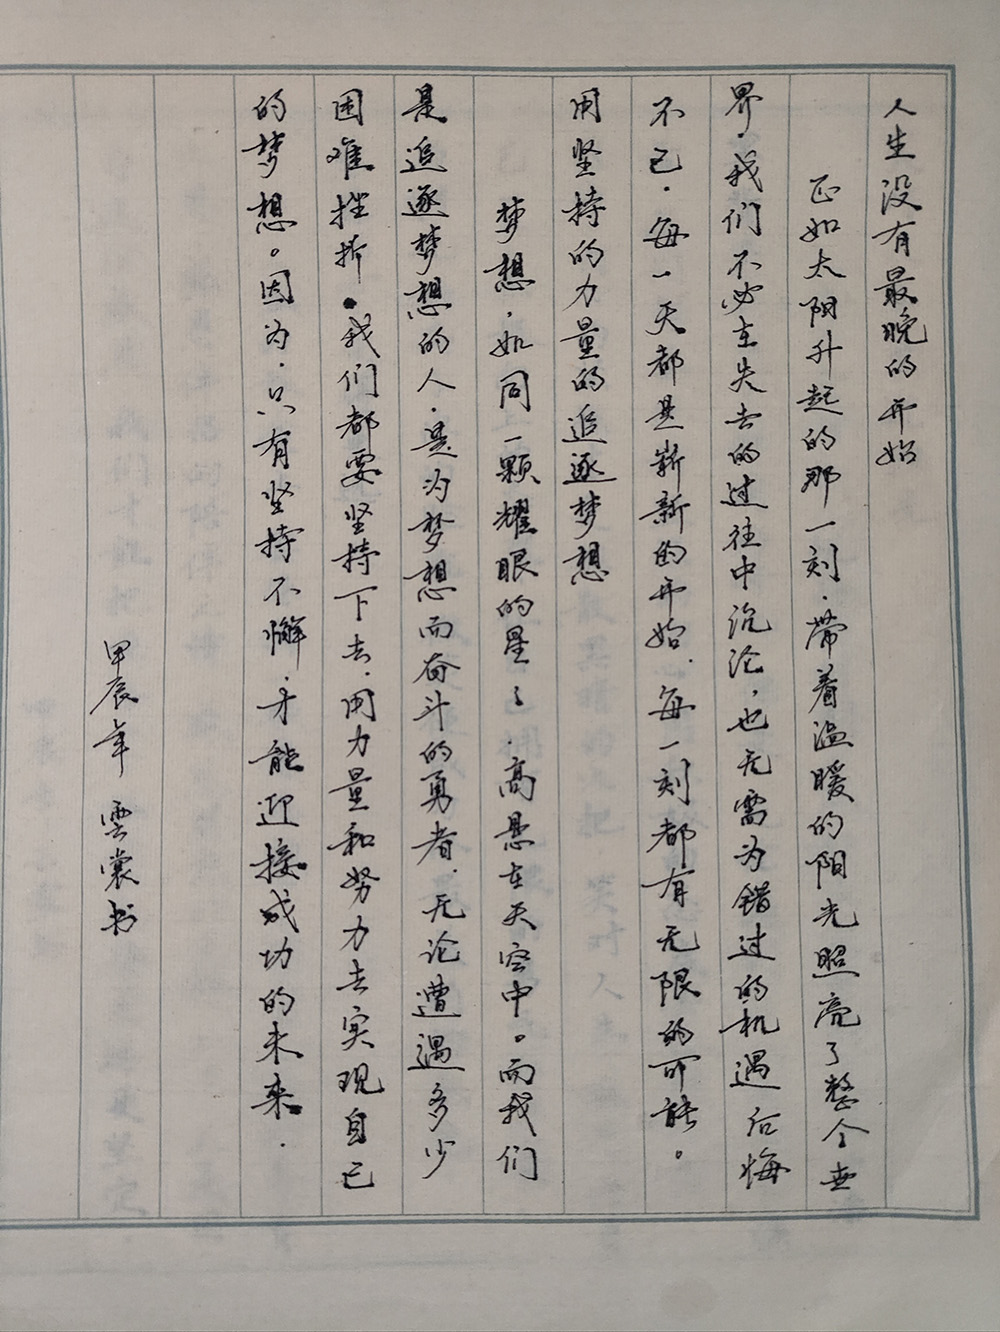 人生没有最晚的开始
正如太阳升起的那一刻.带着温暖的阳光照亮了整个世
界.我们不必在失去的过往中沉沦,也无需为错过的机遇后悔
不已.每一天都是崭新的开始.每一刻都有无限的可能。
用坚持的力量的追逐梦想
梦想.如同一颗耀眼的星々.高悬在天空中。而我们
是追逐梦想的人.是为梦想而奋斗的勇者.无论遭遇多少
困难挫折.我们都要坚持下去.用力量和努力去实现自己
的梦想。因为.只有坚持不懈.才能迎接成功的未来.
甲辰年 雲裳书